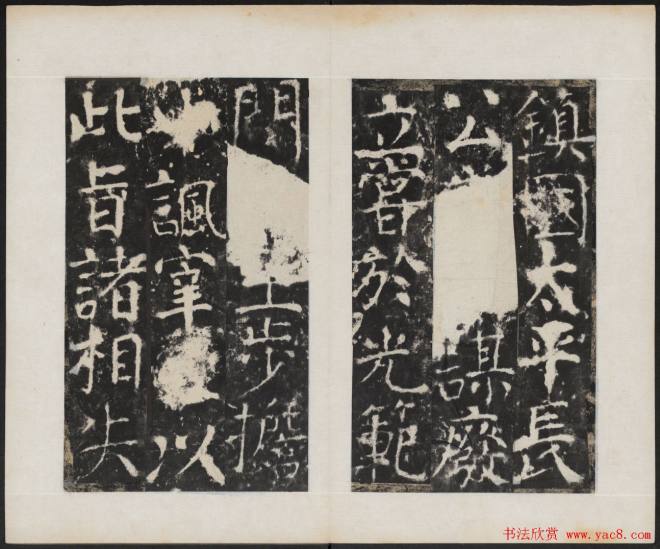 鎮國太平長
公謀廢
立嘗於光範
門步擔
諷宰以
此旨諸相失
书法欣赏 www.yac8.com